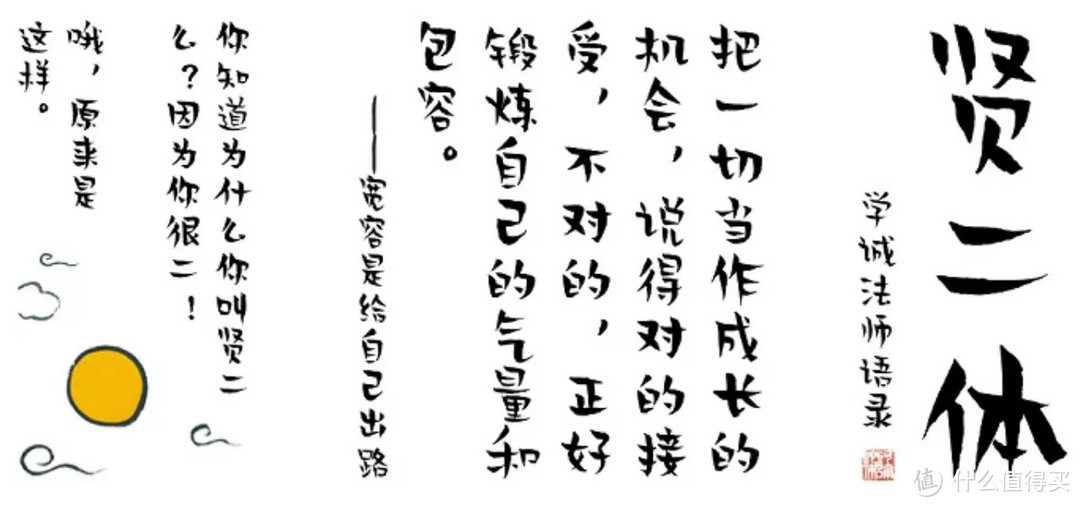 贤二体
学诚法师语录
把一切当作成长的
机会，说得对的接
受，不对的，正好
锻炼自己的气量和
包容。
——宽容是给自己出路
你知道为什么你叫贤二
么？因为你很二！
哦，原来是
这样。
值 什么值得买